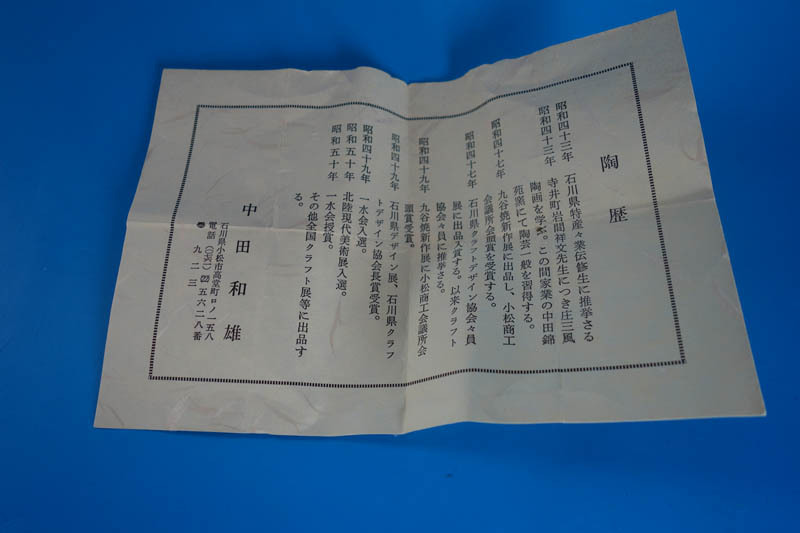 陶歴
昭和四十三年 石川県特産々業伝修生に推挙さる
昭和四十三年 寺井町岩間祥文先生につき庄三風
陶画を学ぶ。この間家業の中田錦
苑窯にて陶芸一般を習得する。
昭和四十七年 九谷焼新作展に出品し、小松商工
会議所会頭賞を受賞する。
昭和四十七年 石川県クラフトデザイン協会々員
展に出品入賞する。以来クラフト
協会々員に推挙さる。
昭和四十九年 九谷焼新作展に小松商工会議所会
頭賞受賞。
昭和四十九年 石川県デザイン展、石川県クラフ
トデザイン協会長賞受賞。
昭和四十九年 一水会入選。
昭和五十年 北陸現代美術展入選。
昭和五十年 一水会授賞。
その他全国クラフト展等に出品す
る。
中田和雄
石川県小松市高堂町ロノ一五八
電話 五六二八番
九二三